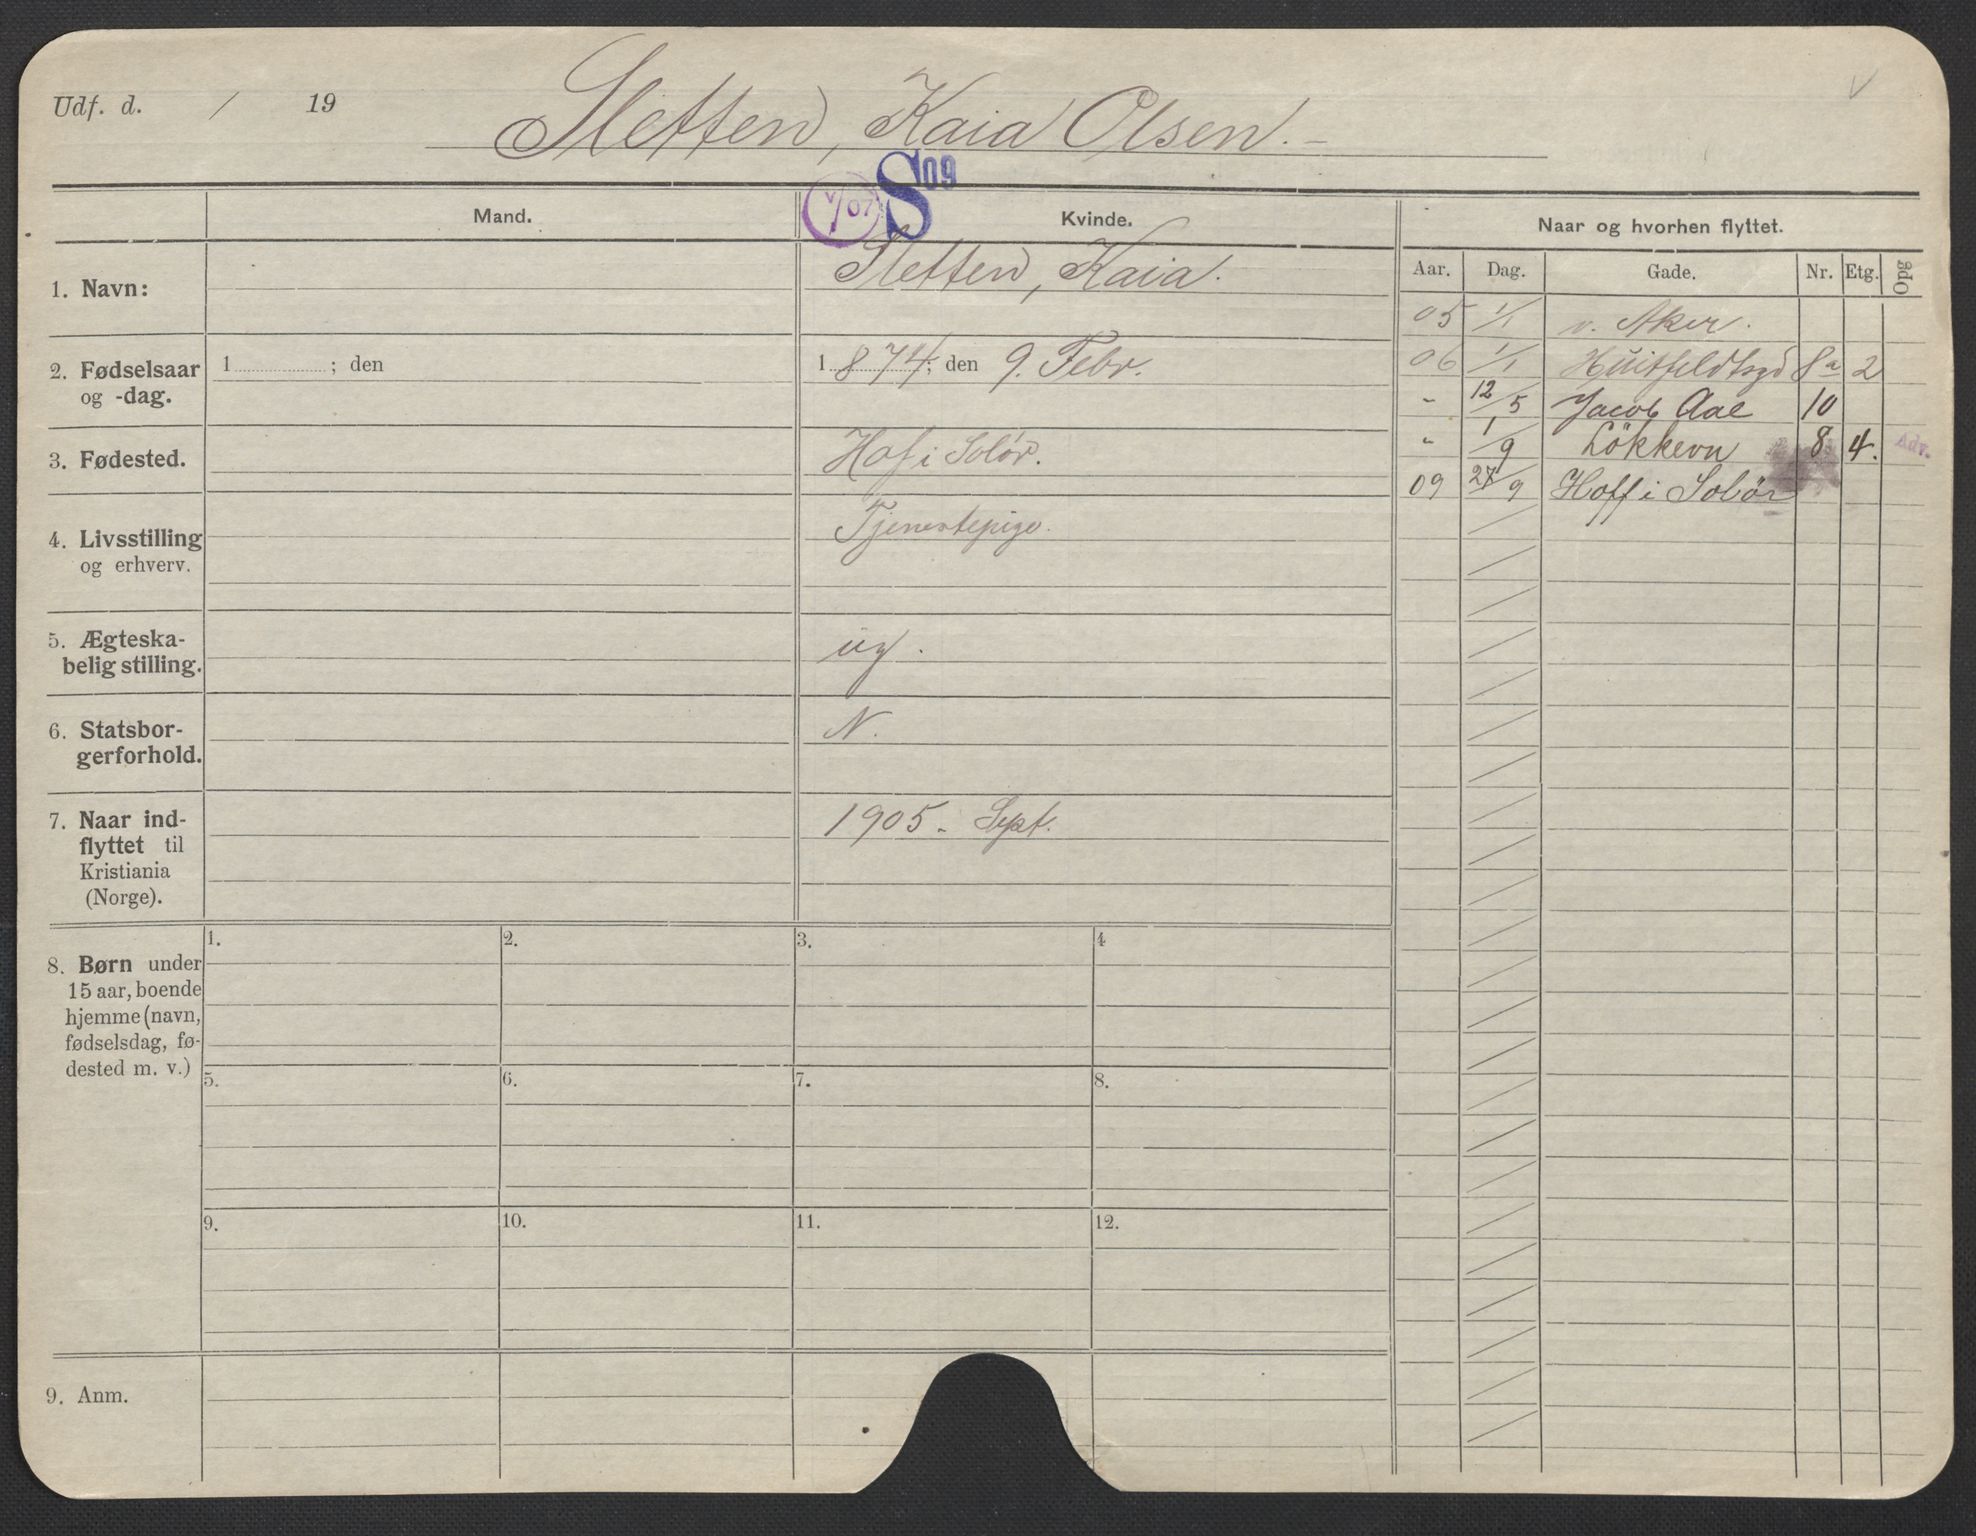 Udf. d. / 19
Sletten, Kaia Olsen.
V
S 09
V/07
Mand.
Kvinde.
Naar og hvorhen flyttet.
Aar. Dag. Gade. Nr. Etg. Opg
1. Navn:
Sletten, Kaia.
2. Fødselsaar
og -dag.
1 ; den
1874; den 9. Febr.
3. Fødested.
Hof i Solør.
4. Livsstilling
og erhverv.
Tjenestepige.
5. Ægteska-
belig stilling.
ug.
6. Statsbor-
gerforhold.
N.
7. Naar ind-
flyttet til
Kristiania
(Norge).
1905 - Sept.
05 1/1 v. Aker.
06 1/1 Huitfeldtsgd 8a 2
" 12/5 Jacob Aal 10
" 1/9 Lökkevn 8 4. Adv.
09 27/9 Hoff i Solör
8. Børn under
15 aar, boende
hjemme (navn,
fødselsdag, fø-
dested m. v.)
1. 2. 3. 4
5. 6. 7. 8.
9. 10. 11. 12.
9. Anm.